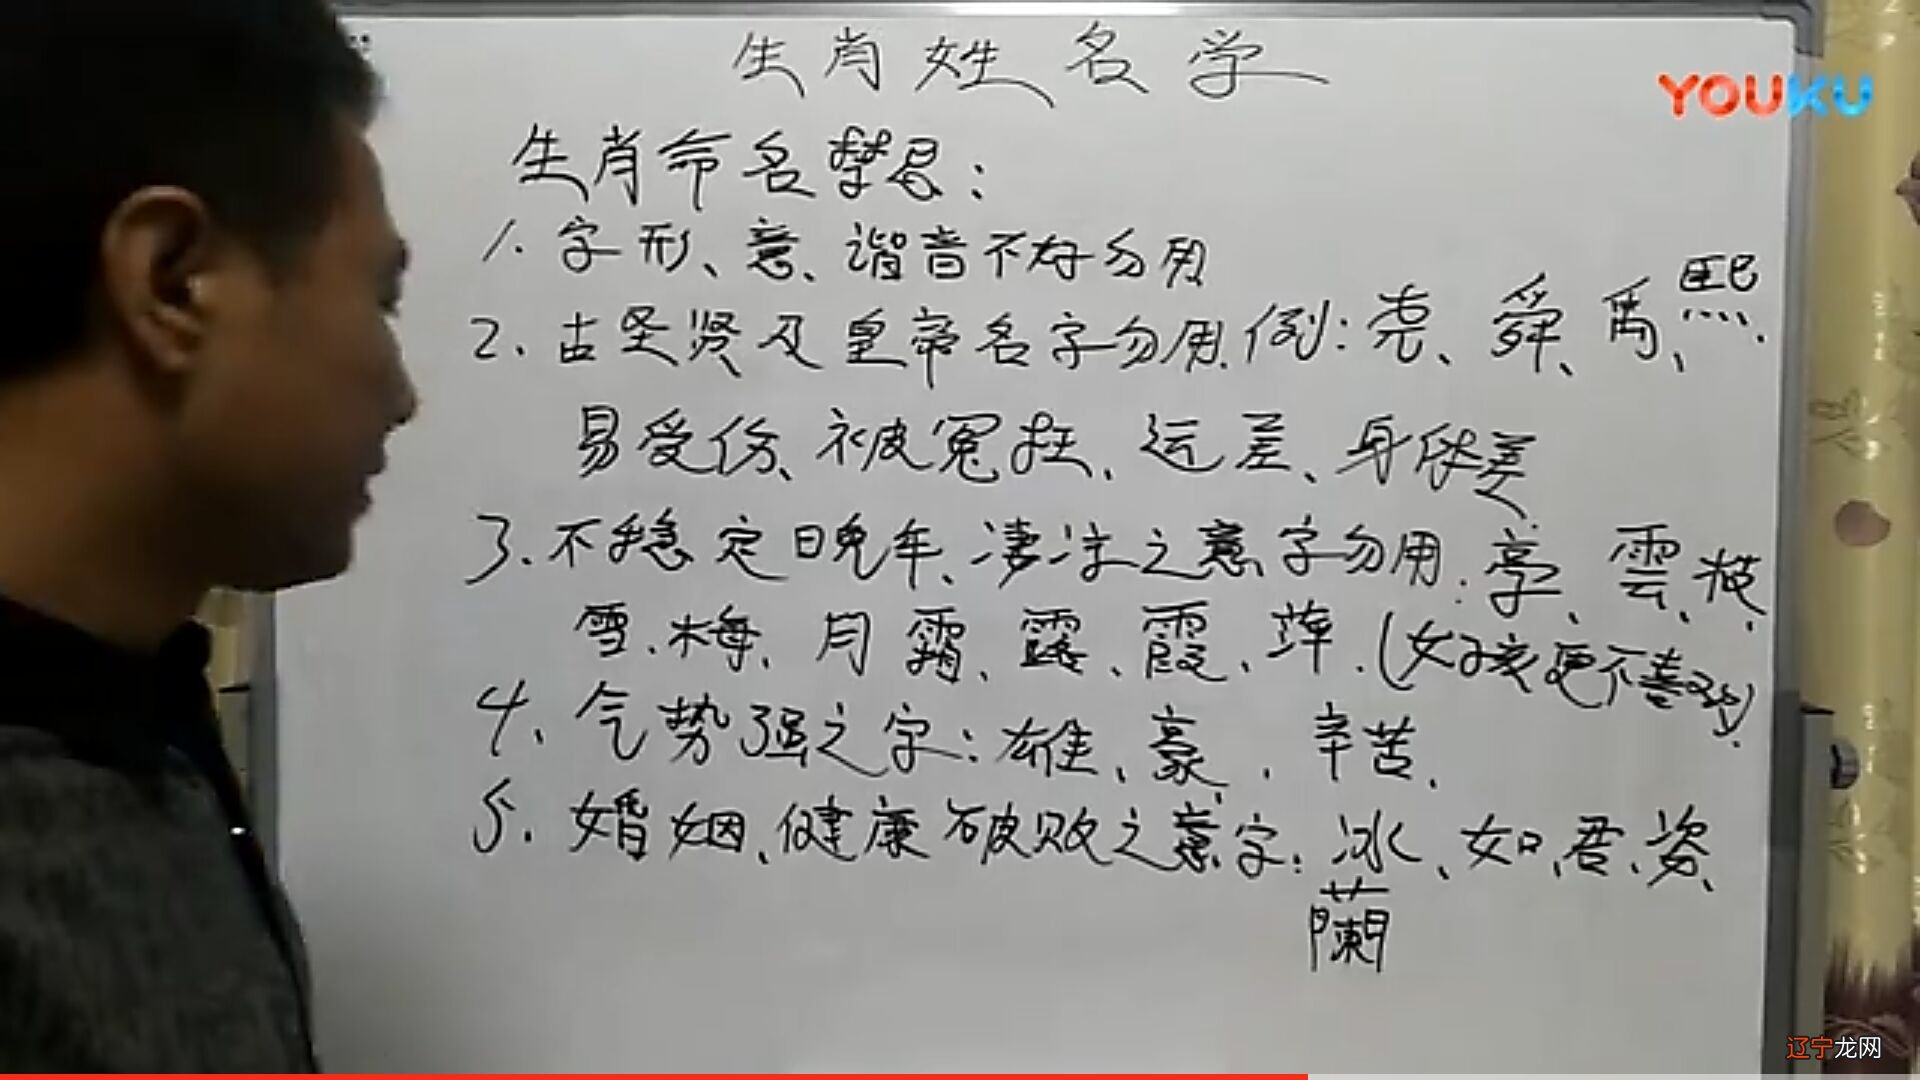 生肖姓名学
YOUKU
生肖命名禁忌：
1.字形、意、谐音不好勿用
2.古圣贤及皇帝名字勿用.例：尧、舜、禹、熙.
易受伤、被冤枉、运差、身体差
3.不稳定晚年、凄凉之意字勿用.亭、雲、枝、
雪、梅、月、霜、露、霞、萍.(女孩更不喜欢).
4、气势强之字：雄、豪、辛苦.
5.婚姻、健康破败之意字：冰、如、君、姿、
蘭
辽宁龙网